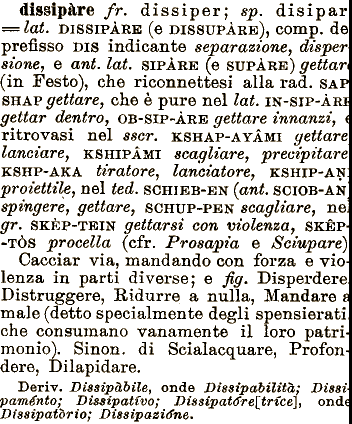 dissipàre fr. dissiper; sp. disipar
= lat. DISSIPÀRE (e DISSUPÀRE), comp. de
prefisso DIS indicante separazione, disper
sione, e ant. lat. SIPÀRE (e SUPÀRE) gettar
(in Festo), che riconnettesi alla rad. SAP
SHAP gettare, che è pure nel lat. IN-SIP-ÀRE
gettar dentro, OB-SIP-ÀRE gettare innanzi, e
ritrovasi nel sscr. KSHAP-AYÂMI gettare
lanciare, KSHIPÂMI scagliare, precipitare
KSHP-AKA tiratore, lanciatore, KSHIP-AN
proiettile, nel ted. SCHIEB-EN (ant. SCIOB-AN
spingere, gettare, SCHUP-PEN scagliare, ne
gr. SKÈP-TEIN gettarsi con violenza, SKÊP-
-TÒS procella (cfr. Prosapia e Sciupare)
Cacciar via, mandando con forza e vio-
lenza in parti diverse; e fig. Disperdere
Distruggere, Ridurre a nulla, Mandare a
male (detto specialmente degli spensierati
che consumano vanamente il loro patri-
monio). Sinon. di Scialacquare, Profon-
dere, Dilapidare.
Deriv. Dissipàbile, onde Dissipabilità; Dissi-
paménto; Dissipatívo; Dissipatóre[tríce], onde
Dissipatòrio; Dissipazióne.